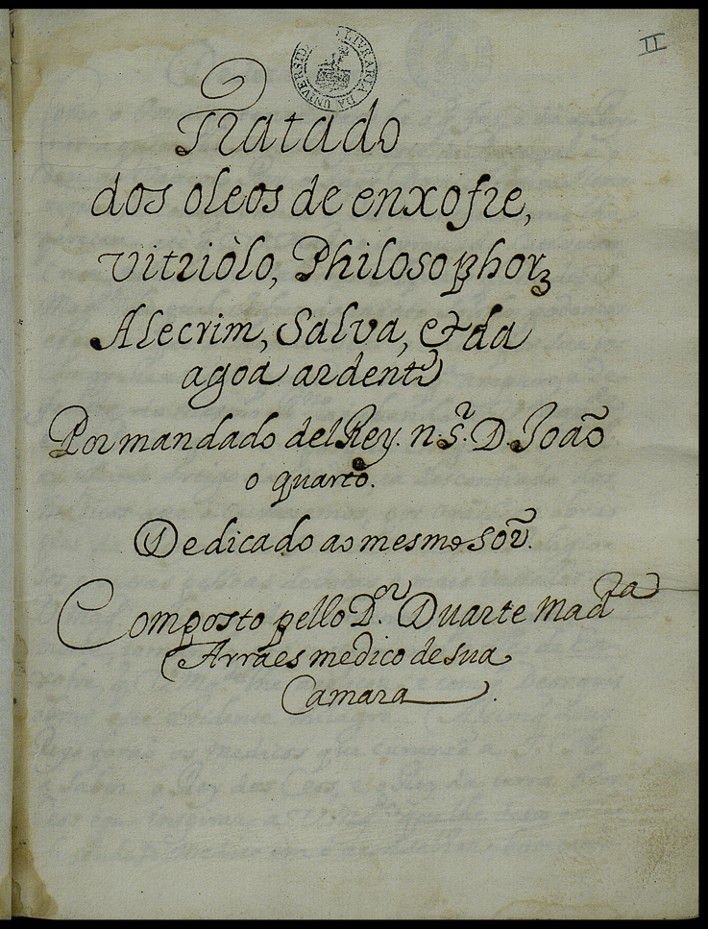 II
LIVRARIA DA UNIVERSID
Tratado
dos oleos de enxofre,
vitriòlo, Philosophorꝫ
Alecrim, Salva, & da
agoa ardente
Por mandado del Rey. n. Sr. D. João
o quarto.
Dedicado ao mesmo Sor̃.
Composto pello Dor. Duarte Madra
Arraes medico de sua
Camara.